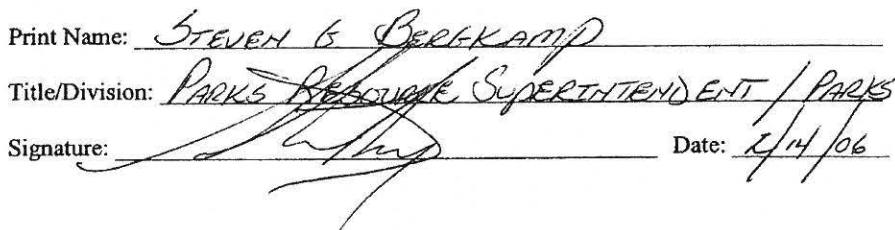 Print Name: STEVEN G BERGKAMP
Title/Division: PARKS RESOURCE SUPERINTENDENT / PARKS
Signature: Date: 2/14/06